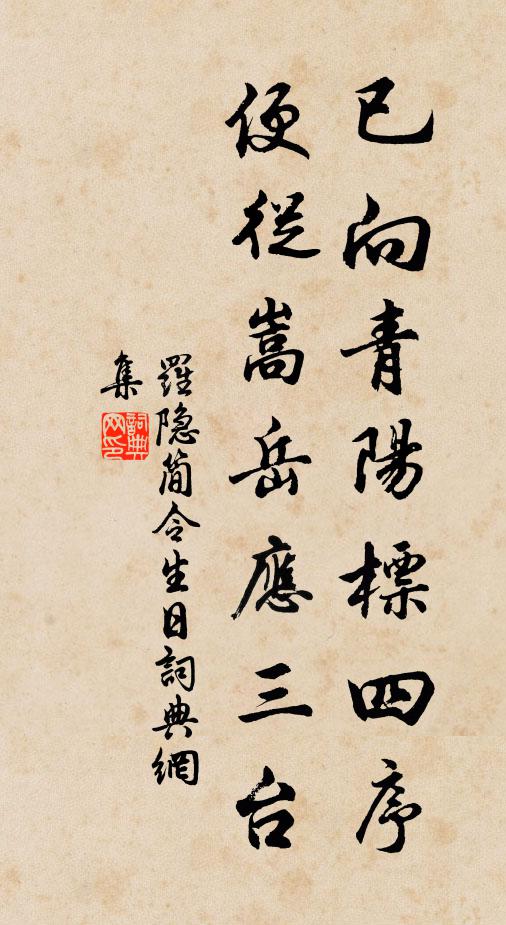 已向青陽標四序
便從嵩岳應三台
羅隐簡令生日詞典網
集
詞典
网印